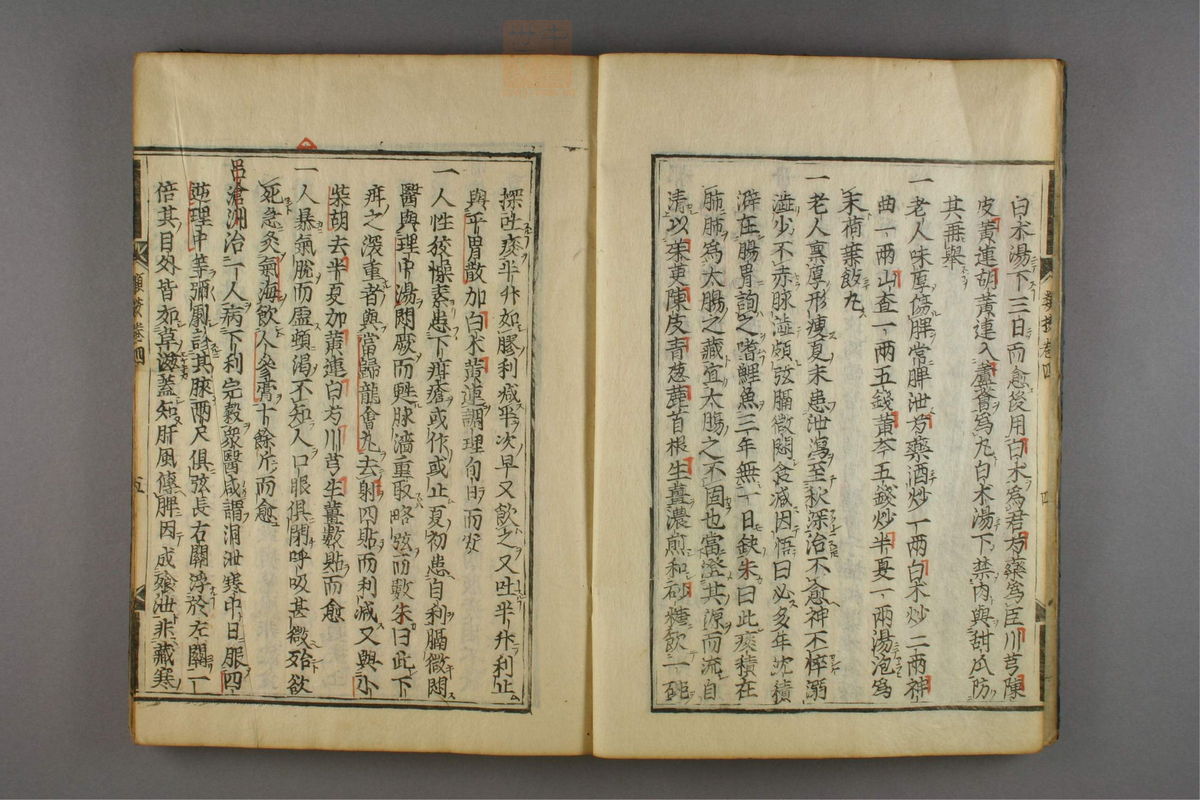 白朮湯下三日而愈後用白朮爲君芍藥爲臣川芎陳
皮黃連胡黃連入蘆薈爲丸白朮湯下禁肉與甜瓜防
其再舉
一老人味厚傷脾常脾泄芍藥酒炒一兩白朮炒二兩神
曲一兩山査一兩五錢黃芩五錢炒半夏一兩湯泡爲
末荷葉飯丸
一老人禀厚形瘦夏末患泄瀉至秋深治不愈神不悴溺
澁少不赤脉澁頗弦膈微悶食减因悟曰必多年沈積
澼在腸胃詢之嗜鯉魚三年無一日缺朱曰此痰積在
肺肺爲大腸之藏宜大腸之不固也當澄其源而流自
淸以茱萸陳皮青葱蓛首根生薑濃煎和砂糖飲一碗
探吐痰半升如膠利减半次早又飲之又吐半升利止
與平胃散加白朮黃連調理旬日而安
一人性狡懆素患下疳瘡或作或止夏初患自利膈微悶
醫與理中湯悶厥而甦脉濇重取略弦而數朱曰此下
疳之深重者與當歸龍會丸去射四貼而利减又與小
柴胡去半夏加黃連白芍川芎生薑數貼而愈
一人暴氣脫而虛頓瀉不知人口眼俱閉呼吸甚微殆欲
死急灸氣海飲人參膏十餘斤而愈
呂滄洲治一人病下利完穀衆醫咸謂洞泄寒中日服四
逆理中等彌劇診其脉兩尺俱弦長右關浮於左關一
倍其目外眥如草滋蓋知肝風傳脾因成飱泄非藏寒
類按卷四
四
五